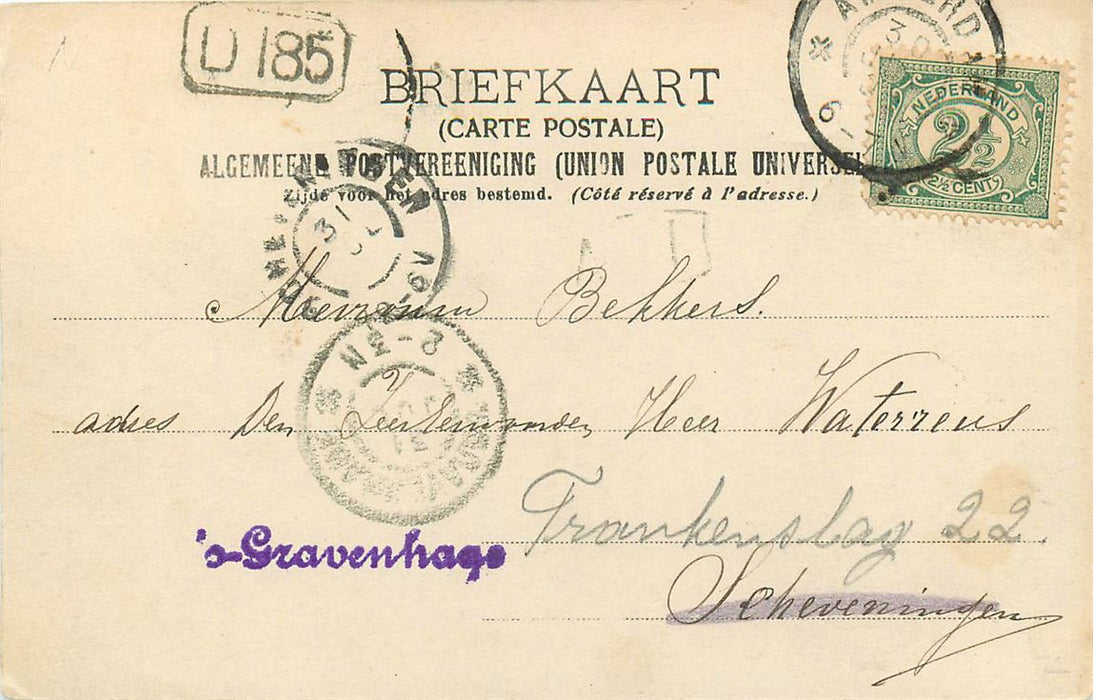 U 185
BRIEFKAART
(CARTE POSTALE)
ALGEMEENE POSTVEREENIGING (UNION POSTALE UNIVERSEL
Zijde voor het adres bestemd. (Côté réservé à l'adresse.)
NEDERLAND
2½
2½ CENT
31
Mevrouw Bekkers.
2-3N
adres Den Heer Waterreus
Frankenslag 22.
's-Gravenhage
Scheveningen